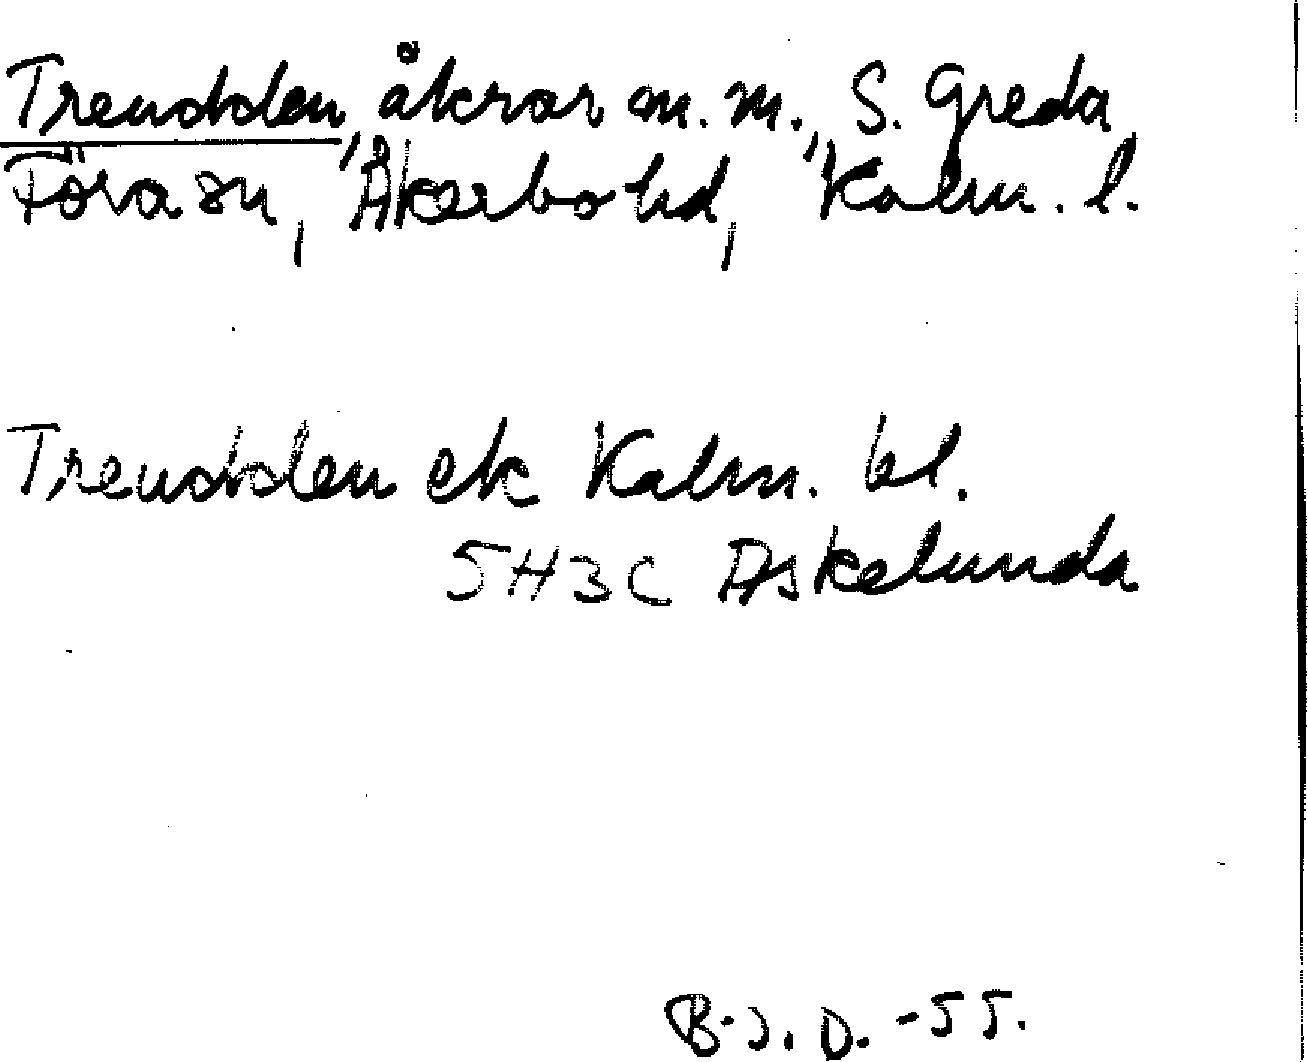 Treudden, åkrar m. m., S. Greda,
Föra sn, Åkerbo hd, Kalm. l.
Treudden ek Kalm. bl.
5H3C Askelunda
B.J.D. -55.